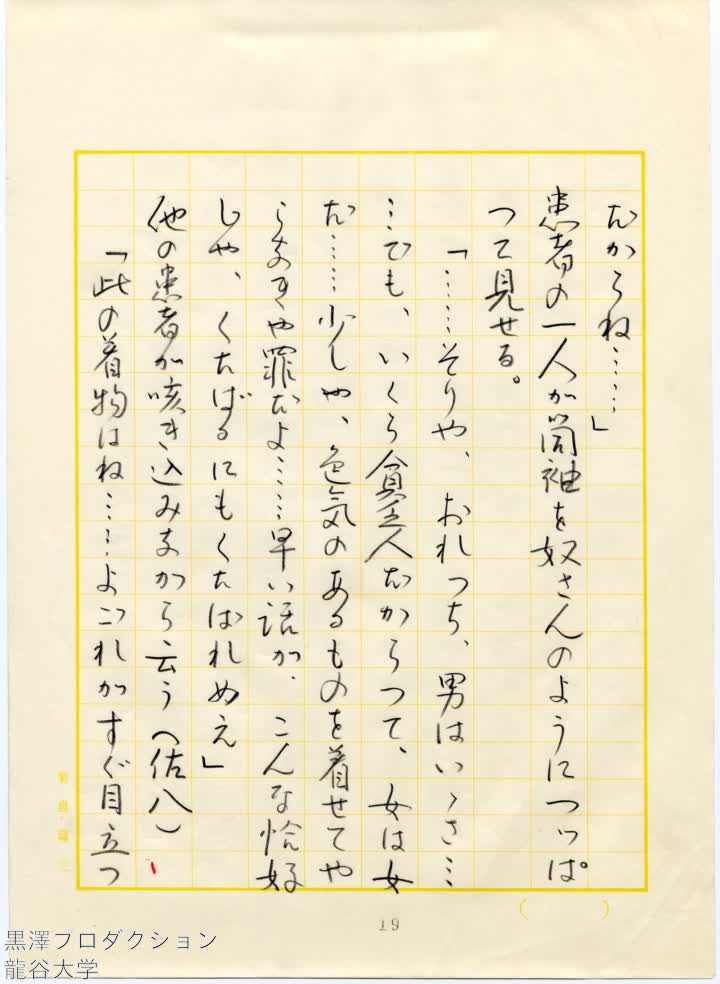 だからね……」
患者の一人が筒袖を奴さんのようにつっぱ
って見せる。
「……そりや、おれっち、男はいゝさ…
…でも、いくら貧乏人だからって、女は女
だ……少しや、色気のあるものを着せてや
らなきや罪だよ……早い話が、こんな恰好
じや、くたばるにもくたばれめえ」
他の患者が咳き込みながら云う（佐八）
「此の着物はね……よごれがすぐ目立つ
19
黒澤プロダクション
龍谷大学